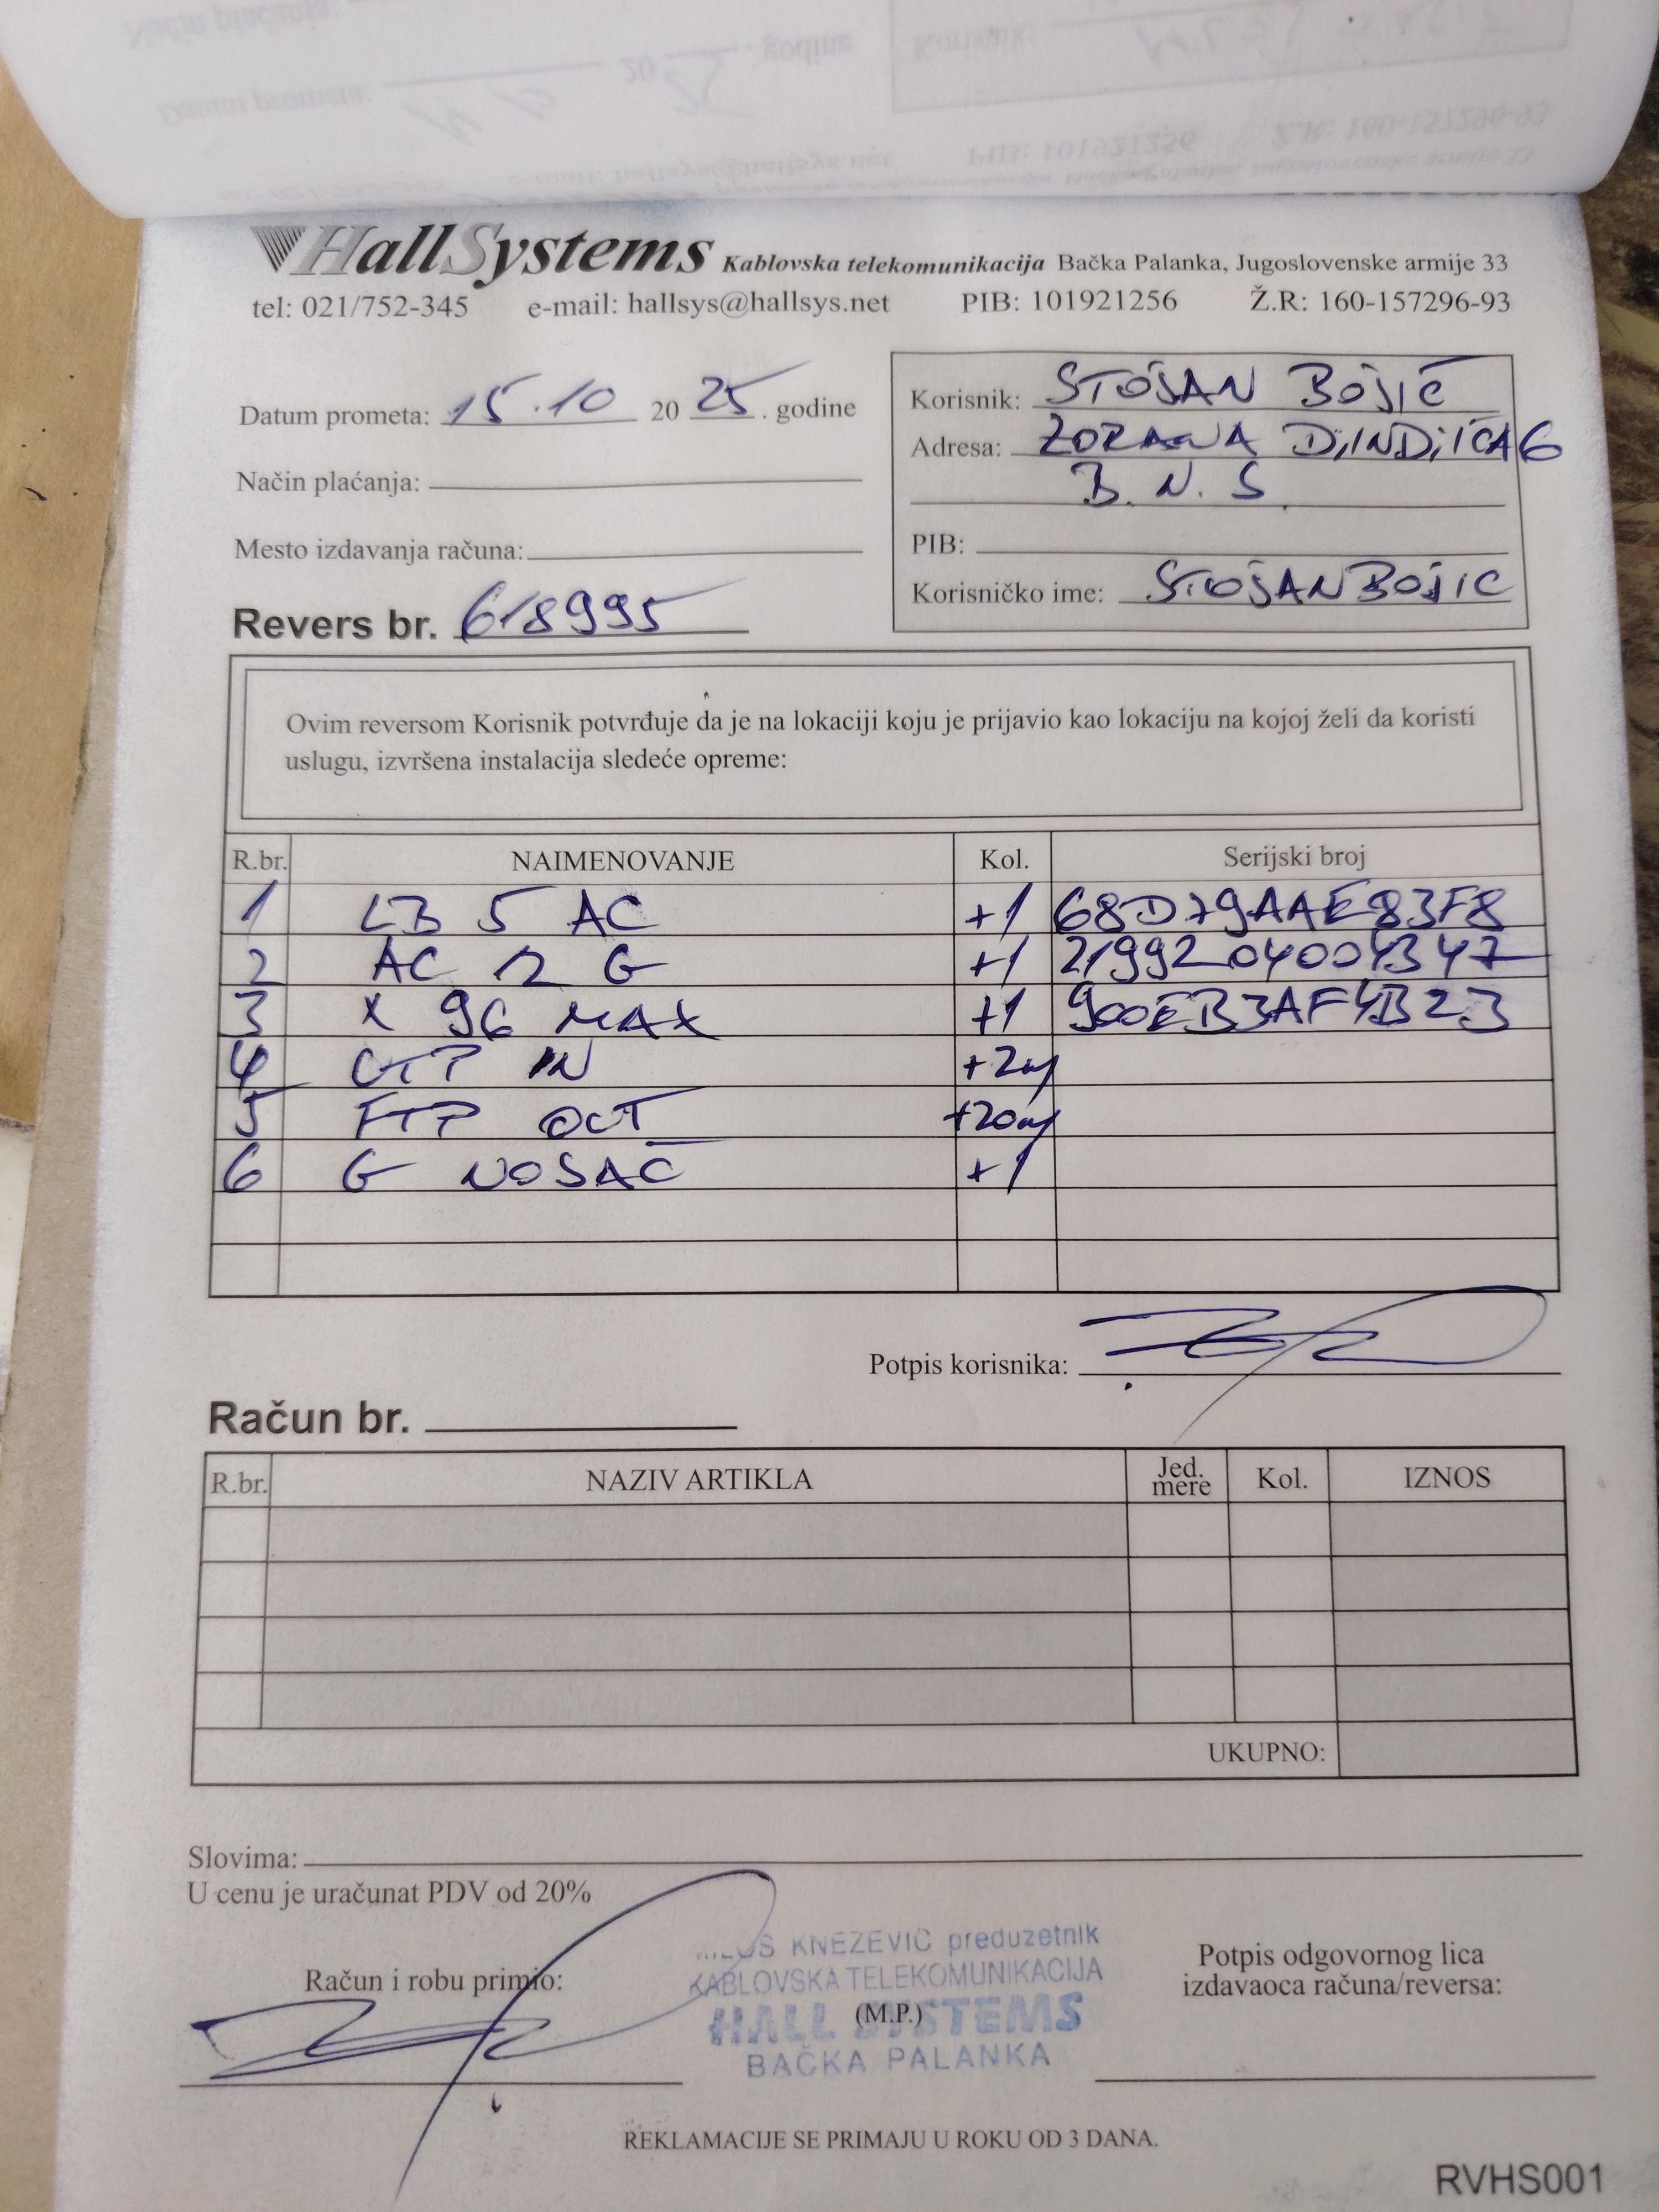 HallSystems Kablovska telekomunikacija Bačka Palanka, Jugoslovenske armije 33
tel: 021/752-345 e-mail: hallsys@hallsys.net PIB: 101921256 Ž.R: 160-157296-93
Datum prometa: 15.10 20 25. godine
Način plaćanja:
Mesto izdavanja računa:
Revers br. 618995
Korisnik: STOJAN BOJIĆ
Adresa: ZORANA DJINDJIĆA 6
B. N. S.
PIB:
Korisničko ime: STOJANBOJIC
Ovim reversom Korisnik potvrđuje da je na lokaciji koju je prijavio kao lokaciju na kojoj želi da koristi
uslugu, izvršena instalacija sledeće opreme:
R.br. NAIMENOVANJE Kol. Serijski broj
1 LB 5 AC +1 68D79AAE83F8
2 AC 12 G +1 2199204004347
3 X 96 MAX +1 900EB3AF4B23
4 UTP IN +2m
5 FTP OUT +20m
6 G NOSAČ +1
Potpis korisnika:
Račun br.
R.br. NAZIV ARTIKLA Jed. mere Kol. IZNOS
UKUPNO:
Slovima:
U cenu je uračunat PDV od 20%
KNEZEVIC preduzetnik
KABLOVSKA TELEKOMUNIKACIJA
HALL SYSTEMS
BAČKA PALANKA
Račun i robu primio:
(M.P.)
Potpis odgovornog lica
izdavaoca računa/reversa:
REKLAMACIJE SE PRIMAJU U ROKU OD 3 DANA.
RVHS001